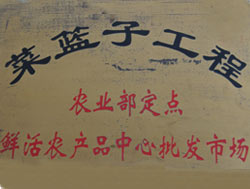 菜篮子工程
农业部定点
鲜活农产品中心批发市场